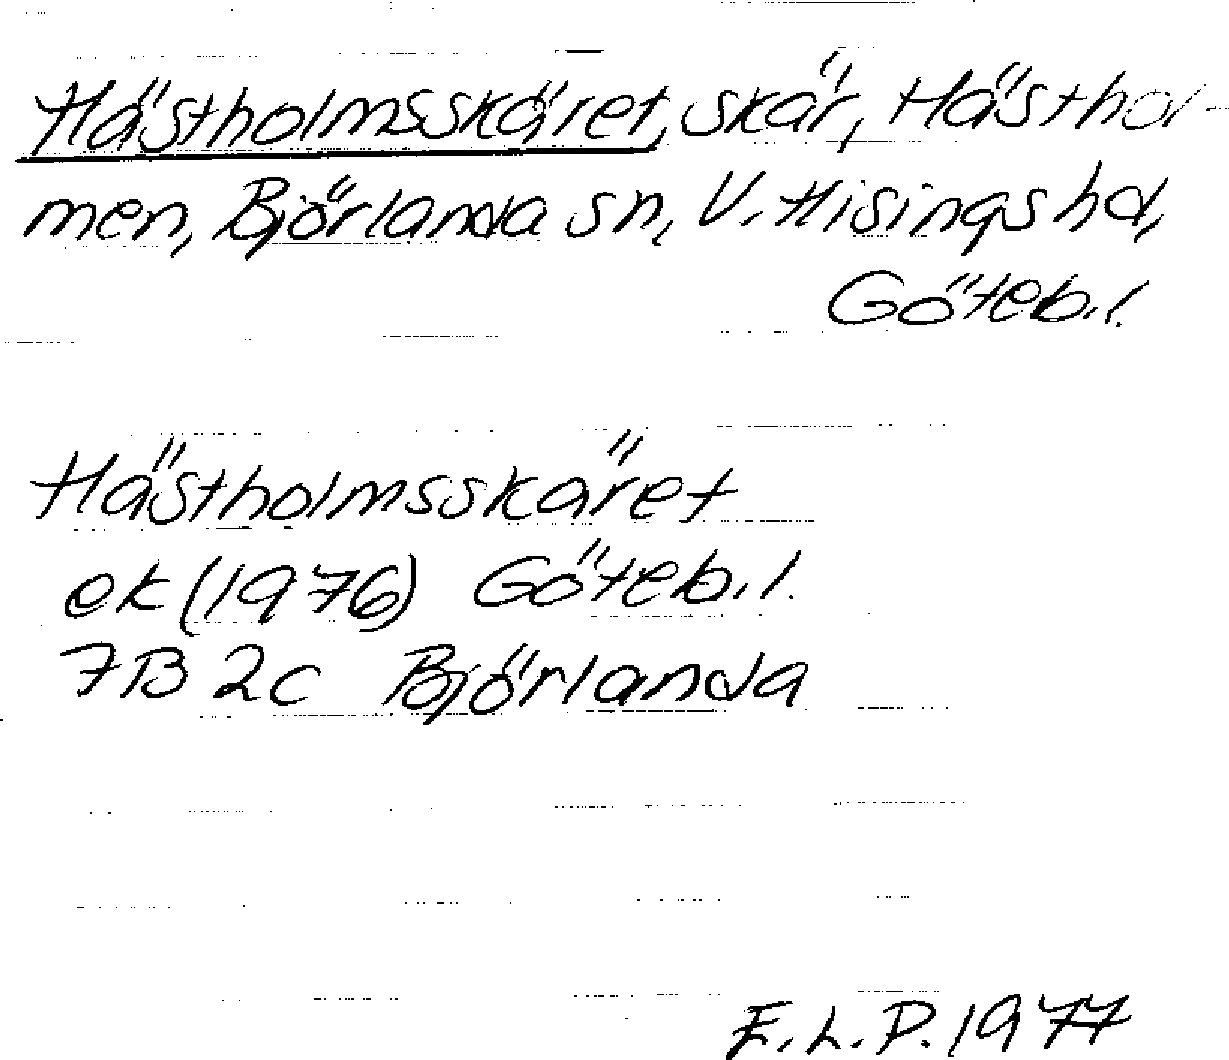 Hästholmsskäret, skär, Hästhol-
men, Björlanda sn, V. Hisings hd,
Göteb. l.
Hästholmsskäret
ek (1976) Göteb. l.
7B 2c Björlanda
E.L.P. 1977